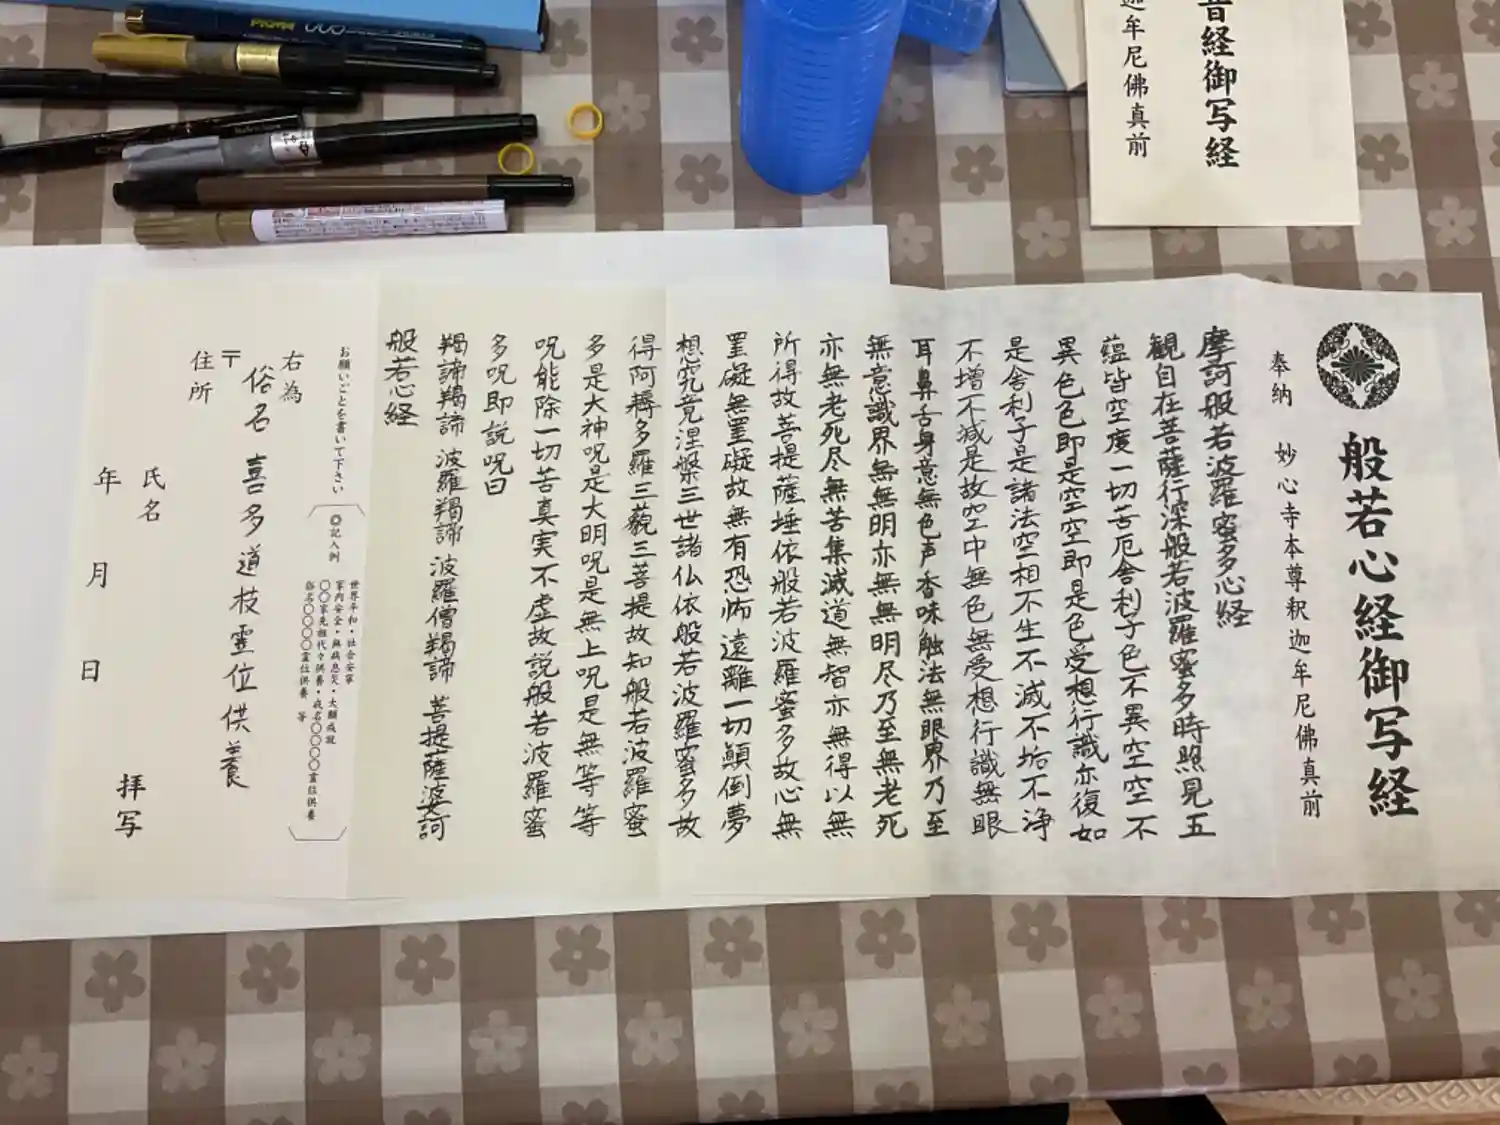 般若心経御写経
奉納 妙心寺本尊釈迦牟尼佛真前
摩訶般若波羅蜜多心経
観自在菩薩行深般若波羅蜜多時照見五
蘊皆空度一切苦厄舎利子色不異空空不
異色色即是空空即是色受想行識亦復如
是舎利子是諸法空相不生不滅不垢不浄
不増不減是故空中無色無受想行識無眼
耳鼻舌身意無色声香味触法無眼界乃至
無意識界無無明亦無無明尽乃至無老死
亦無老死尽無苦集滅道無智亦無得以無
所得故菩提薩埵依般若波羅蜜多故心無
罣礙無罣礙故無有恐怖遠離一切顛倒夢
想究竟涅槃三世諸仏依般若波羅蜜多故
得阿耨多羅三藐三菩提故知般若波羅蜜
多是大神呪是大明呪是無上呪是無等等
呪能除一切苦真実不虚故説般若波羅蜜
多呪即説呪曰
羯諦羯諦 波羅羯諦 波羅僧羯諦 菩提薩婆訶
般若心経
お願いごとを書いて下さい
◎記入例
世界平和・社会安寧
家内安全・無病息災・大願成就
〇〇家先祖代々供養・戒名〇〇〇〇霊位供養
俗名〇〇〇〇霊位供養 等
右為
俗名 喜多道枝霊位供養
〒
住所
氏名
拝写
年 月 日
音経御写経
迦牟尼佛真前
PIGMA